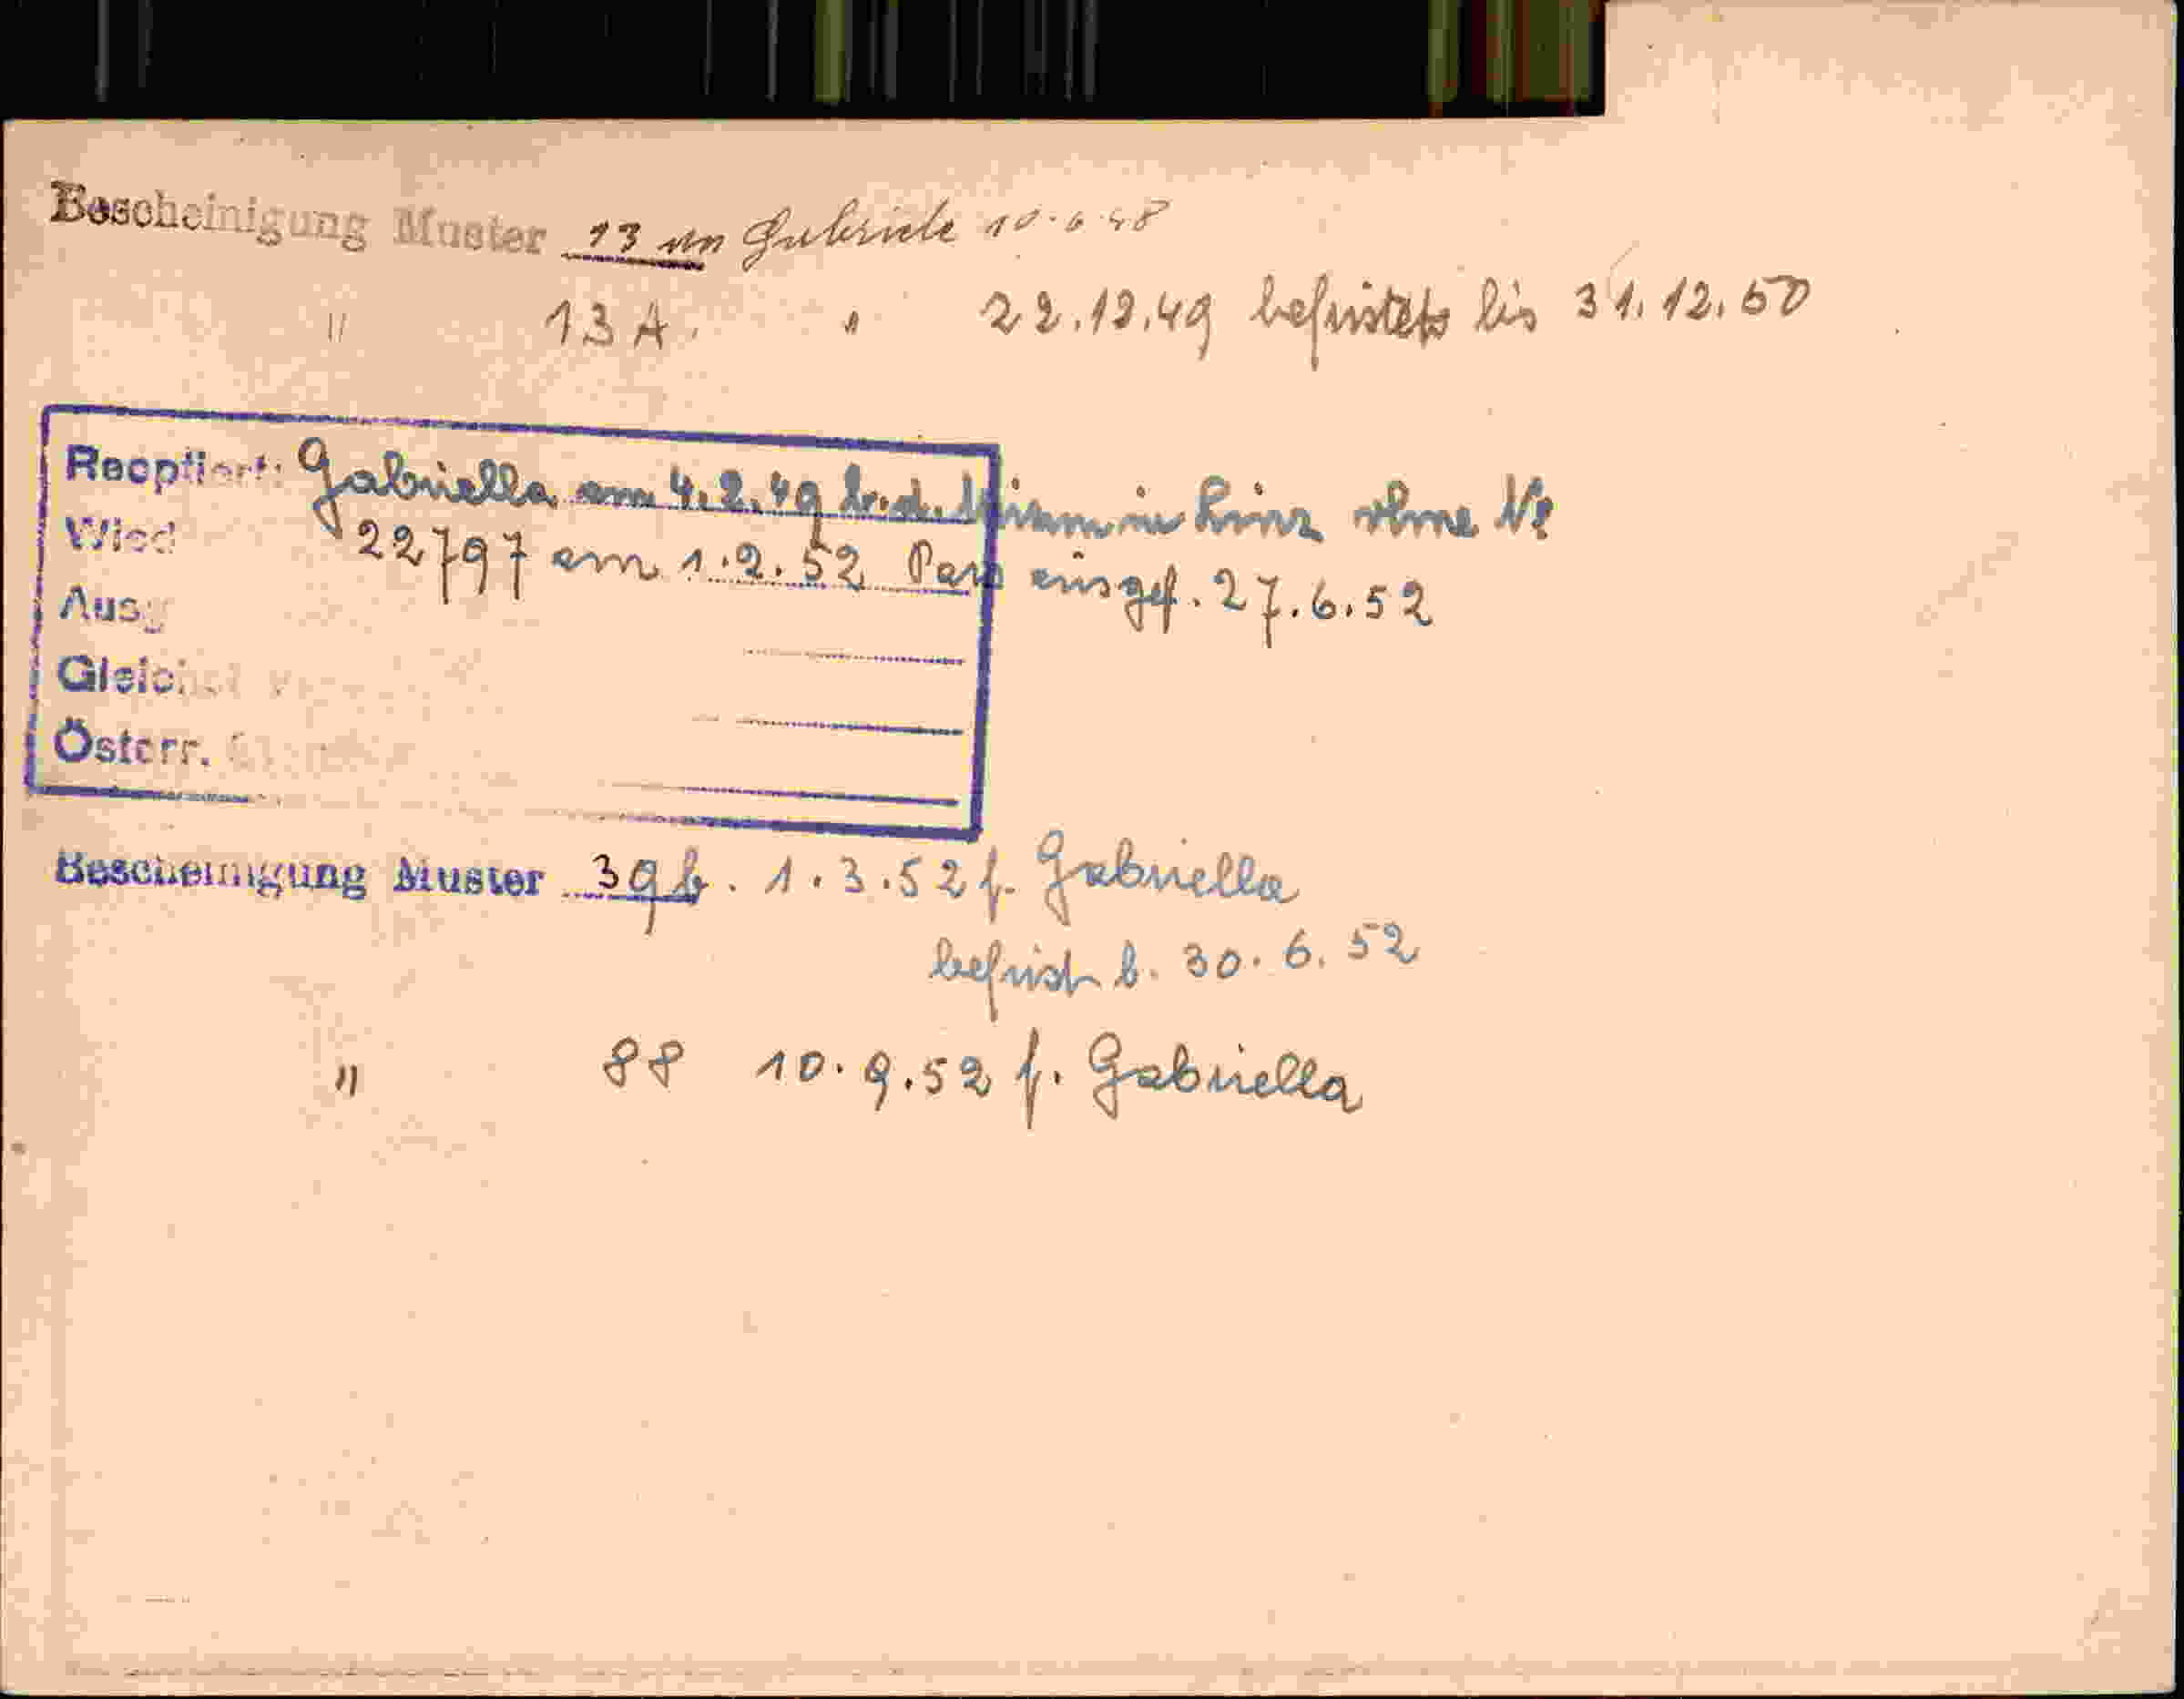 Bescheinigung Muster 13 an Gabriele 10.6.48
" 13A. " 22.12.49 befristet bis 31.12.50
Reoptiert: Gabriella am 4.2.49 b. d. in Linz ohne No
Wied 22797 am 1.2.52 Pass eingef. 27.6.52
Ausg
Gleich
Österr.
Bescheinigung Muster 39b. 1.3.52 f. Gabriella
befrist b. 30.6.52
" 88 10.9.52 f. Gabriella